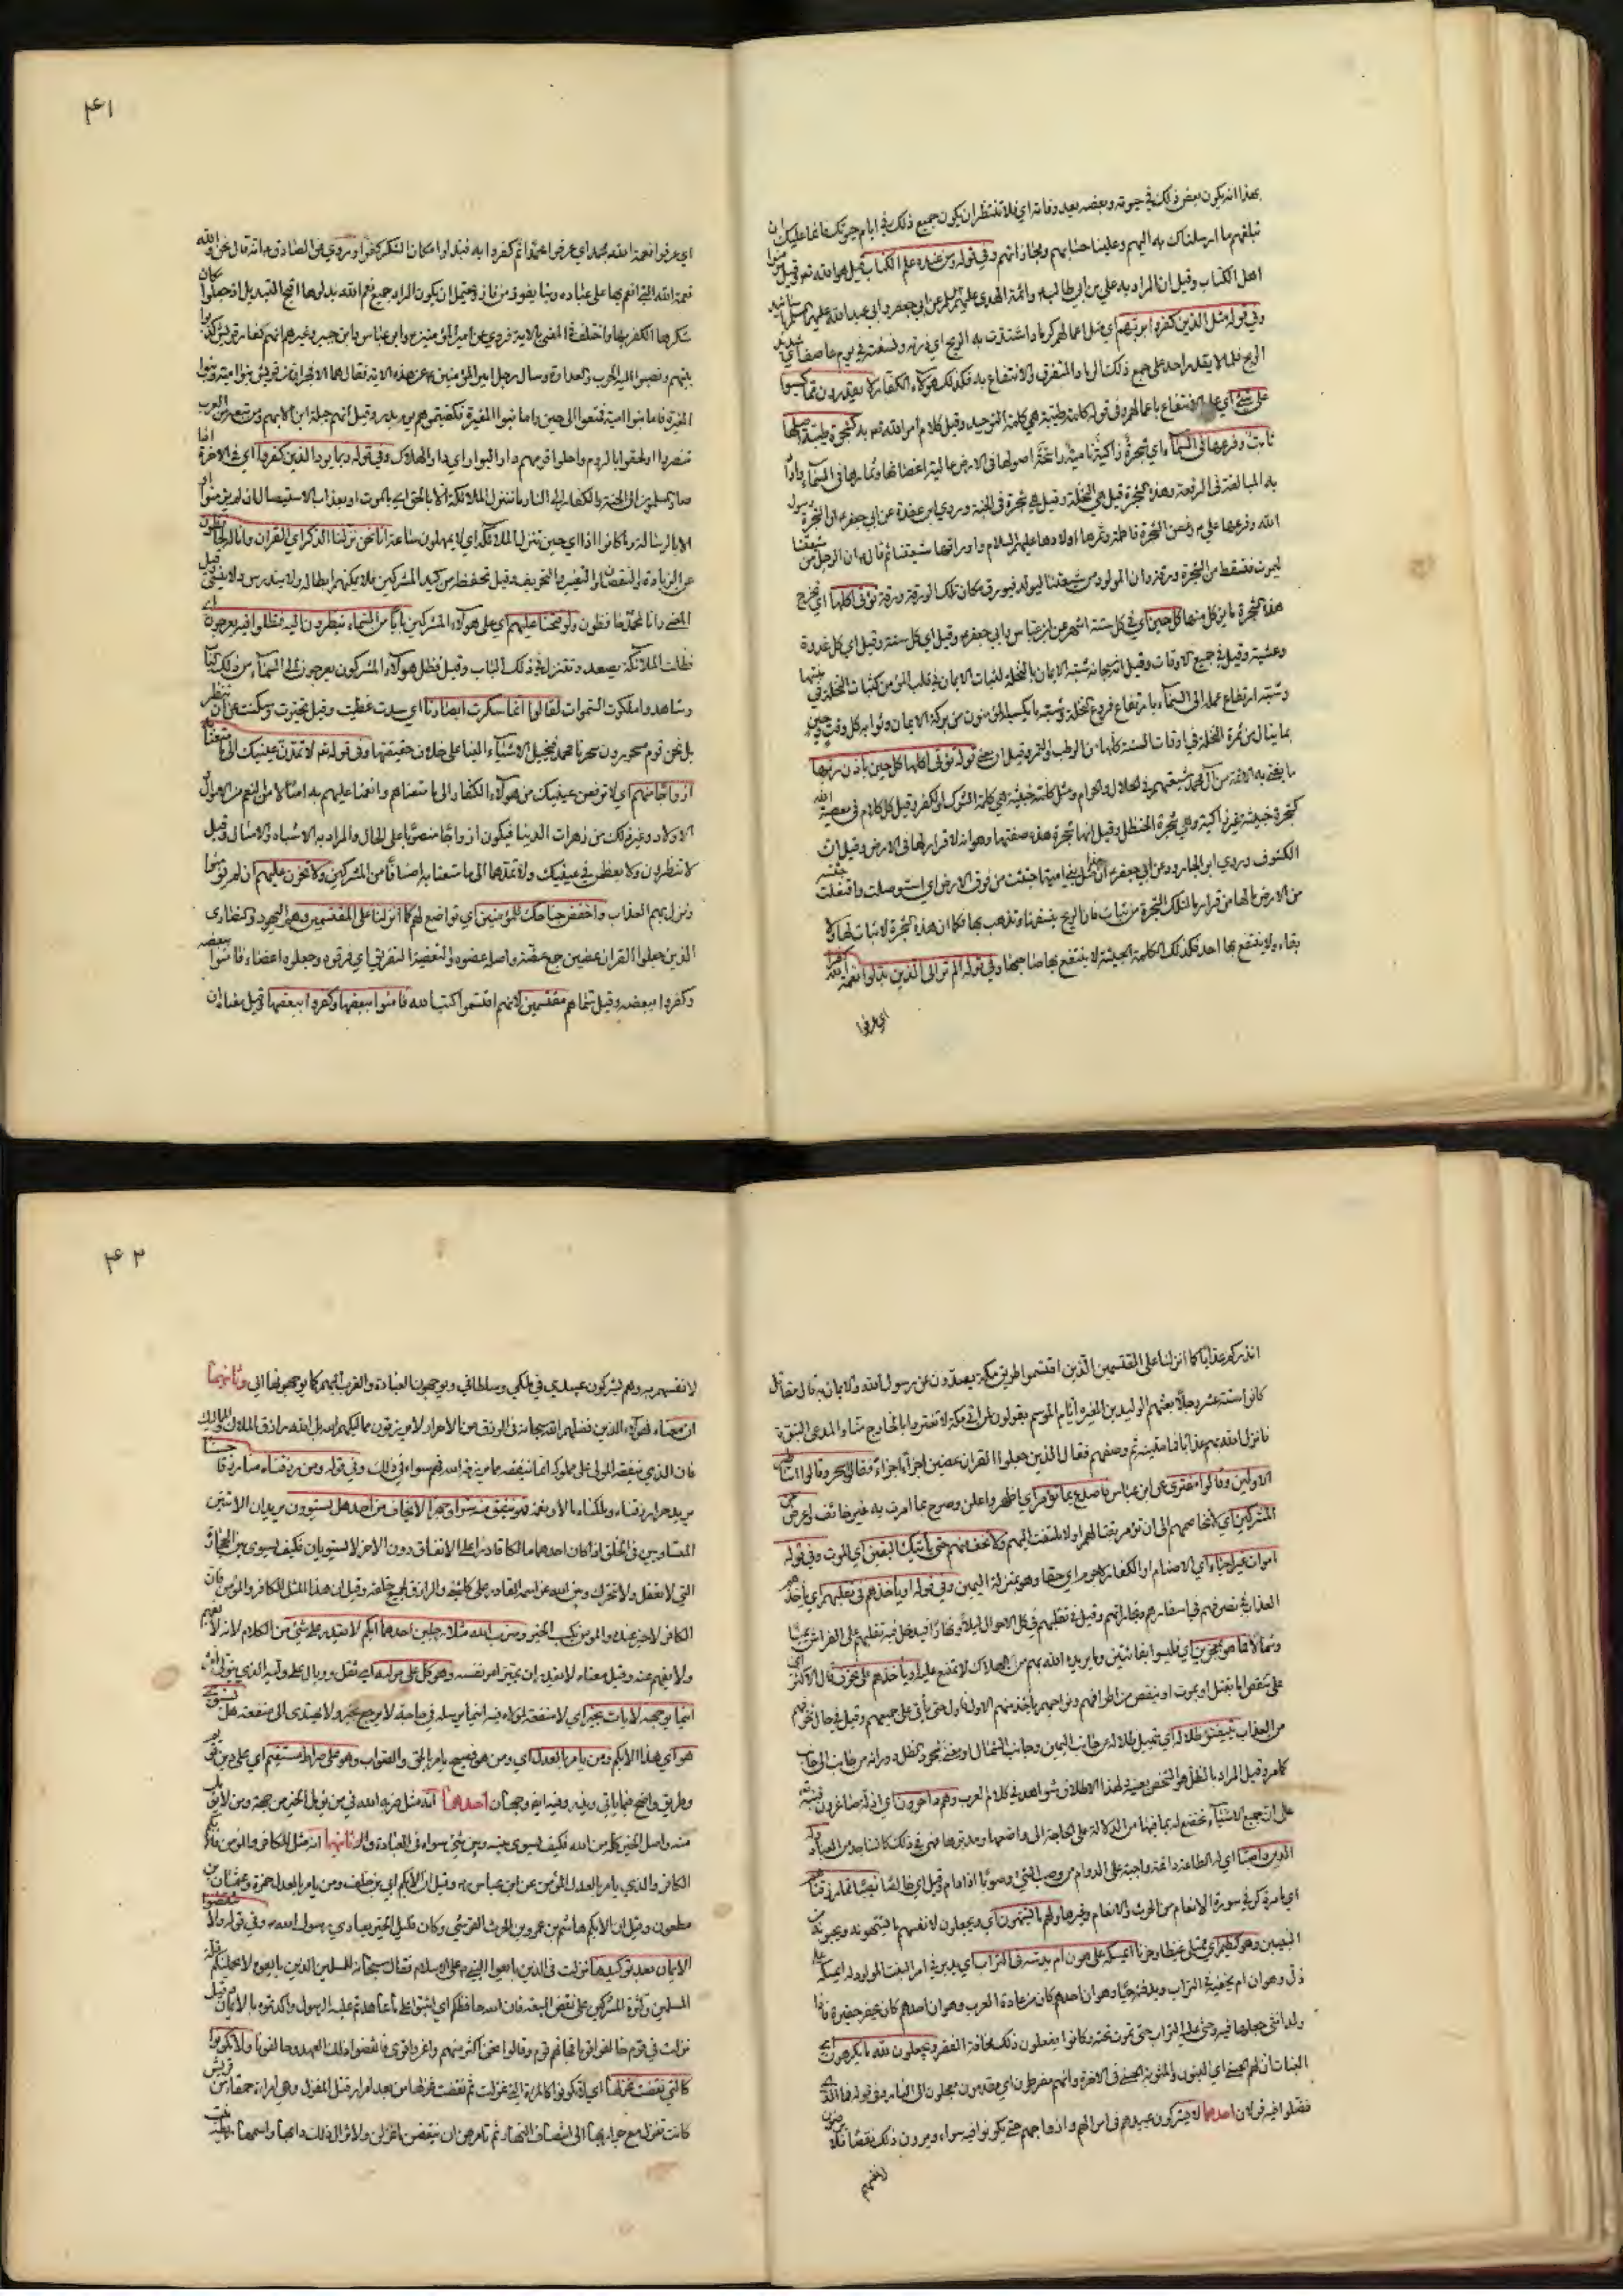 بهذا انه يكون بعض ذلك في حيوته وبعضه بعد وفاته اي فلا تنتظر ان يكون جميع ذلك في ايام حيوتك فانما عليك ان
تبلغهم ما ارسلناك به اليهم وعلينا حسابهم ومجازاتهم وفي قوله ومن عنده علم الكتاب قيل هو الله تعم وقيل
اهل الكتاب وقيل ان المراد به علي بن ابي طالب وائمة الهدى عليهم عن ابي جعفر وابي عبد الله عليهما
وفي قوله مثل الذين كفروا بربهم اي مثل اعمالهم كرماد اشتدت به الريح اي ذرته ونسفته في يوم عاصف اي شديد
الريح فلا يقدر احد على جميع ذلك الرماد المتفرق والانتفاع به فكذلك هؤلاء الكفار لا يقدرون مما كسبوا
على شئ اي على الانتفاع باعمالهم وفي قوله كلمة طيبة هي كلمة التوحيد وقيل كلام امر الله تعم به كشجرة طيبة اصلها
ثابت وفرعها في السماء اي شجرة زاكية نامية راسخة اصولها في الارض عالية اغصانها وثمارها في السماء واراد
به المبالغة في الرفعة وهذه الشجرة قيل هي النخلة وقيل هي شجرة في الجنة وروى ابن عقدة عن ابي جعفر ان الشجرة رسول
الله وفرعها علي وغصن الشجرة فاطمة وثمرها اولادها عليهم السلام واوراقها شيعتنا ثم قال ان الرجل من شيعتنا
ليموت فتسقط من الشجرة ورقة وان المولود من شيعتنا ليولد فيورق مكان تلك الورقة ورقة تؤتي اكلها اي تخرج
هذه الشجرة ما يؤكل منها كل حين اي في كل ستة اشهر عن ابن عباس وابي جعفر وقيل اي كل سنة وقيل اي كل غدوة
وعشية وقيل في جميع الاوقات وقيل انه سبحانه شبه الايمان بالنخلة لثبات الايمان في قلب المؤمن كثبات النخلة في منبتها
وشبه ارتفاع عمله الى السماء بارتفاع فروع النخلة وشبه ما يكسبه المؤمنون من بركة الايمان وثوابه كل وقت وحين
بما ينال من ثمرة النخلة في اوقات السنة كلها من الرطب والتمر وقيل ان معنى قوله تؤتي اكلها كل حين باذن ربها
ما يفتي به الائمة من آل محمد شيعتهم في الحلال والحرام ومثل كلمة خبيثة هي كلمة الشرك والكفر وقيل كل كلام في معصية الله
كشجرة خبيثة غير زاكية وهي شجرة الحنظل وقيل انها شجرة هذه صفتها وهو انه لا قرار لها في الارض وقيل انها
الكشوث وروى ابو الجارود عن ابي جعفر ان هذا مثل بني امية اجتثت من فوق الارض اي استوصلت واقتلعت جثته
من الارض ما لها من قرار ما لتلك الشجرة من ثبات فان الريح ينسفها وتذهب بها فكما ان هذه الشجرة لا ثبات لها ولا
بقاء ولا ينتفع بها احد فكذلك الكلمة الخبيثة لا ينتفع بها صاحبها وفي قوله الم تر الى الذين بدلوا نعمة الله كفرا
اي عرفوا
۴۱
اي عرفوا نعمة الله بمحمد اي عرفوا محمدا ثم كفروا به فبدلوا مكان الشكر كفرا وروي عن الصادق انه قال نحن والله
نعمة الله التي انعم بها على عباده وبنا يفوز من فاز ويحتمل ان يكون المراد جميع نعم الله بدلوها اقبح التبديل اذ جعلوا مكان
شكرها الكفر بها واختلف في المعنى بالاية فروي عن امير المؤمنين وابن عباس وابن جبير وغيرهم انهم كفار قريش كذبوا
نبيهم ونصبوا له الحرب والعداوة وسال رجل امير المؤمنين عن هذه الاية فقال هما الافجران من قريش بنو امية وبنو
المغيرة فاما بنو امية فمتعوا الى حين واما بنو المغيرة فكفيتموهم يوم بدر وقيل انهم جبلة ابن الايهم ومن تبعه من العرب
تنصروا ولحقوا بالروم واحلوا قومهم دار البوار اي دار الهلاك وفي قوله ربما يود الذين كفروا اي في الاخرة اذا
صار المسلمون الى الجنة والكفار الى النار ما ننزل الملائكة الا بالحق اي بالموت او بعذاب الاستيصال ان لم يؤمنوا او
الا بالرسالة وما كانوا اذا اي حين تنزل الملائكة اي لا يمهلون ساعة انا نحن نزلنا الذكر اي القران وانا له لحافظون
عن الزيادة والنقصان والتغيير والتحريف وقيل نحفظه من كيد المشركين فلا يمكنهم ابطاله ولا يندرس ولا ينسى وقيل
المعنى وانا لمحمد حافظون ولو فتحنا عليهم اي على هؤلاء المشركين بابا من السماء ينظرون اليه فظلوا فيه يعرجون اي
فظلت الملائكة يصعد وتنزل في ذلك الباب وقيل فظل هؤلاء المشركون يعرجون الى السماء من ذلك الباب
وشاهدوا ملكوت السموات لقالوا انما سكرت ابصارنا اي سدت وغطيت وقيل تحيرت وسكنت عن ان تنظر
بل نحن قوم مسحورون سحرنا محمد فيخيل الاشياء الينا على خلاف حقيقتها وفي قوله تعم لا تمدن عينيك الى ما متعنا به
ازواجا منهم اي لا ترفعن عينيك من هؤلاء الكفار الى ما متعناهم وانعمنا عليهم به امثالا من النعم من الاموال
الاولاد وغير ذلك من زهرات الدنيا فيكون ازواجا منصوبا على الحال والمراد به الاشباه والامثال وقيل
لا تنظرون ولا يعظمن في عينيك ولا تمدها الى ما متعنا به اصنافا من المشركين ولا تحزن عليهم ان لم يؤمنوا
ونزل بهم العذاب واخفض جناحك للمؤمنين اي تواضع لهم كما انزلنا على المقتسمين وهم اليهود والنصارى
الذين جعلوا القران عضين جمع عضة واصله عضوة والتعضية التفريق اي فرقوه وجعلوه اعضاء فامنوا ببعضه
وكفروا ببعضه وقيل سماهم مقتسمين لانهم اقتسموا كتب الله فامنوا ببعضها وكفروا ببعضها وقيل معناه اني
انذركم عذابا كما انزلنا على المقتسمين الذين اقتسموا طريق مكة يصدون عن رسول الله والايمان به قال مقاتل
كانوا ستة عشر رجلا بعثهم الوليد بن المغيرة ايام الموسم يقولون لمن اتى مكة لا تغتروا بالخارج منا والمدعي النبوة
فانزل الله بهم عذابا فماتوا شر ميتة ثم وصفهم فقال الذين جعلوا القران عضين اجزاء اجزاء فقالوا سحر وقالوا اساطير
الاولين وقالوا مفترى عن ابن عباس فاصدع بما تؤمر اي اظهر واعلن وصرح بما امرت به غير خائف واعرض عن
المشركين اي لا تخاصمهم الى ان تؤمر بقتالهم ولا تلتفت اليهم ولا تخف منهم حتى ياتيك اليقين اي الموت وفي قوله
اموات غير احياء اي الاصنام او الكفار لا جرم اي حقا وهو بمنزلة اليمين وفي قوله او ياخذهم في تقلبهم اي ياخذهم
العذاب في تصرفهم في اسفارهم وتجاراتهم وقيل في تقلبهم في كل الاحوال ليلا ونهارا فيدخل فيه تقلبهم على الفراش يمينا
وشمالا فما هم بمعجزين اي فليسوا بفائتين وما يريده الله بهم من الهلاك لا يمتنع عليه او ياخذهم على تخوف قال الاكثر اي
على تنقص اما بقتل او بموت او بنقص من اطرافهم ونواحيهم ياخذ منهم الاول فالاول حتى ياتي على جميعهم وقيل في حال تخوفهم
من العذاب يتفيئو ظلاله اي تميل ظلاله عن جانب اليمين وجانب الشمال ومعنى سجود الظل دورانه من جانب الى جانب
كما مر وقيل المراد بالظل هو الشخص بعينه ولهذا الاطلاق شواهد في كلام العرب وهم داخرون اي اذلة صاغرون فنبه
على ان جميع الاشياء تخضع له بما فيها من الدلالة على الحاجة الى واضعها ومدبرها فهي في ذلك كالساجد من العباد وله
الدين واصبا اي له الطاعة دائمة واجبة على الدوام من وصب الشئ وصوبا اذا دام وقيل اي خالصا نصيبا مما رزقناهم
اي ما مر ذكره في سورة الانعام من الحرث والانعام وغيرها ولهم ما يشتهون اي ويجعلون لانفسهم ما يشتهونه ويحبونه من
البنين وهو كظيم اي ممتلئ غيظا وحزنا ايمسكه على هون ام يدسه في التراب اي يدبر في امر البنت المولودة له ايمسكه على
ذل وهوان ام يخفيه في التراب ويدفنه حيا وهو ان احدهم كان من عادة العرب وهو ان احدهم كان يحفر حفيرة فاذا
ولد انثى جعلها فيه وحثى عليها التراب حتى تموت تحته وكانوا يفعلون ذلك مخافة الفقر ويجعلون لله ما يكرهون اي
البنات ان لهم الحسنى اي البنون والمثوبة الحسنى في الاخرة وانهم مفرطون اي مقدمون معجلون الى النار وفي قوله فما الذين
فضلوا فيه قولان احدهما لا يشركون عبيدهم في اموالهم وازواجهم حتى يكونوا فيه سواء ويرون ذلك نقصا فلا يرضون
لانفسهم
۴۲
لانفسهم به وهم يشركون عبيدي في ملكي وسلطاني ويوجهون العبادة والقرب اليهم كما يوجهونها الي وثانيهما
ان معناه فهؤلاء الذين فضلهم الله سبحانه في الرزق من الاحرار لا يرزقون مماليكهم بل الله رازق الملاك والمماليك
فان الذي ينفقه المولى على مملوكه انما ينفقه مما يرزقه الله فهم سواء في ذلك وفي قوله ومن رزقناه منا رزقا حسنا
يريد حرا رزقناه وملكناه مالا ونعمة فهو ينفق منه سرا وجهرا لا يخاف من احد هل يستوون يريدان الاثنين
المتساويين في الخلق اذا كان احدهما مالكا قادرا على الانفاق دون الاخر لا يستويان فكيف يسوى بين الحجارة
التي لا تعقل ولا تتحرك وبين الله عز اسمه القادر على كل شئ والرازق لجميع خلقه وقيل ان هذا المثل للكافر والمؤمن فان
الكافر لا خير عنده والمؤمن يكسب الخير وضرب الله مثلا رجلين احدهما ابكم لا يقدر على شئ من الكلام لانه لا يفهم
ولا يفهم عنه وقيل معناه لا يقدر ان يميز امر نفسه وهو كل على موليه اي ثقل ووبال على وليه الذي يتولى امره
اينما يوجهه لا يات بخير اي لا منفعة لمولاه فيه اينما يرسله في حاجة لا يرجع بخير ولا يهتدى الى منفعة هل يستوي
هو اي هذا الابكم ومن يامر بالعدل اي ومن هو فصيح يامر بالحق والصواب وهو على صراط مستقيم اي على دين قويم
وطريق واضح فيما ياتي ويذر وفيه ايضا وجهان احدهما انه مثل ضربه الله في من يؤمل الخير من جهته ومن لا يؤمل
منه واصل الخير كله من الله فكيف يسوى بينه وبين شئ سواه في العبادة وثانيهما انه مثل للكافر والمؤمن فالابكم
الكافر والذي يامر بالعدل المؤمن عن ابن عباس وقيل ان الابكم ابي بن خلف ومن يامر بالعدل حمزة وعثمان بن
مظعون وقيل ان الابكم هاشم بن عمرو بن الحرث القرشي وكان قليل الخير يعادي رسول الله وفي قوله ولا تنقضوا
الايمان بعد توكيدها نزلت في الذين بايعوا النبي على الاسلام فقال سبحانه للمسلمين الذين بايعوه لا يحملنكم قلة
المسلمين وكثرة المشركين على نقض البيعة فان الله حافظكم اي اثبتوا على ما عاهدتم عليه الرسول واكدتموه بالايمان وقيل
نزلت في قوم حالفوا قوما فجاءهم قوم وقالوا نحن اكثر منهم واعز واقوى فانقضوا ذلك العهد وحالفونا ولا تكونوا
كالتي نقضت غزلها اي لا تكونوا كالمراة التي غزلت ثم نقضت غزلها من بعد امرار وفتل للغزل وهي امراة حمقاء من قريش
كانت تغزل مع جواريها الى انتصاف النهار ثم تامرهن ان ينقضن ما غزلن ولا تزال ذلك دابها واسمها ريطة بنت